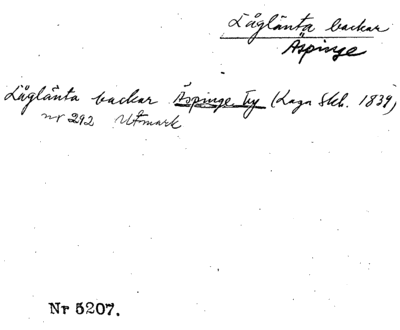 Låglänta backar
Äspinge
Låglänta backar Äspinge by (Laga Skb. 1839)
nr 292 Utmark
Nr 5207.